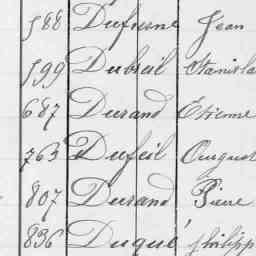 588 Dufresne Jean
599 Dubreil Stanisla
687 Durand Etienne
763 Dufeil August
807 Durand Pierre
836 Duqué philipp